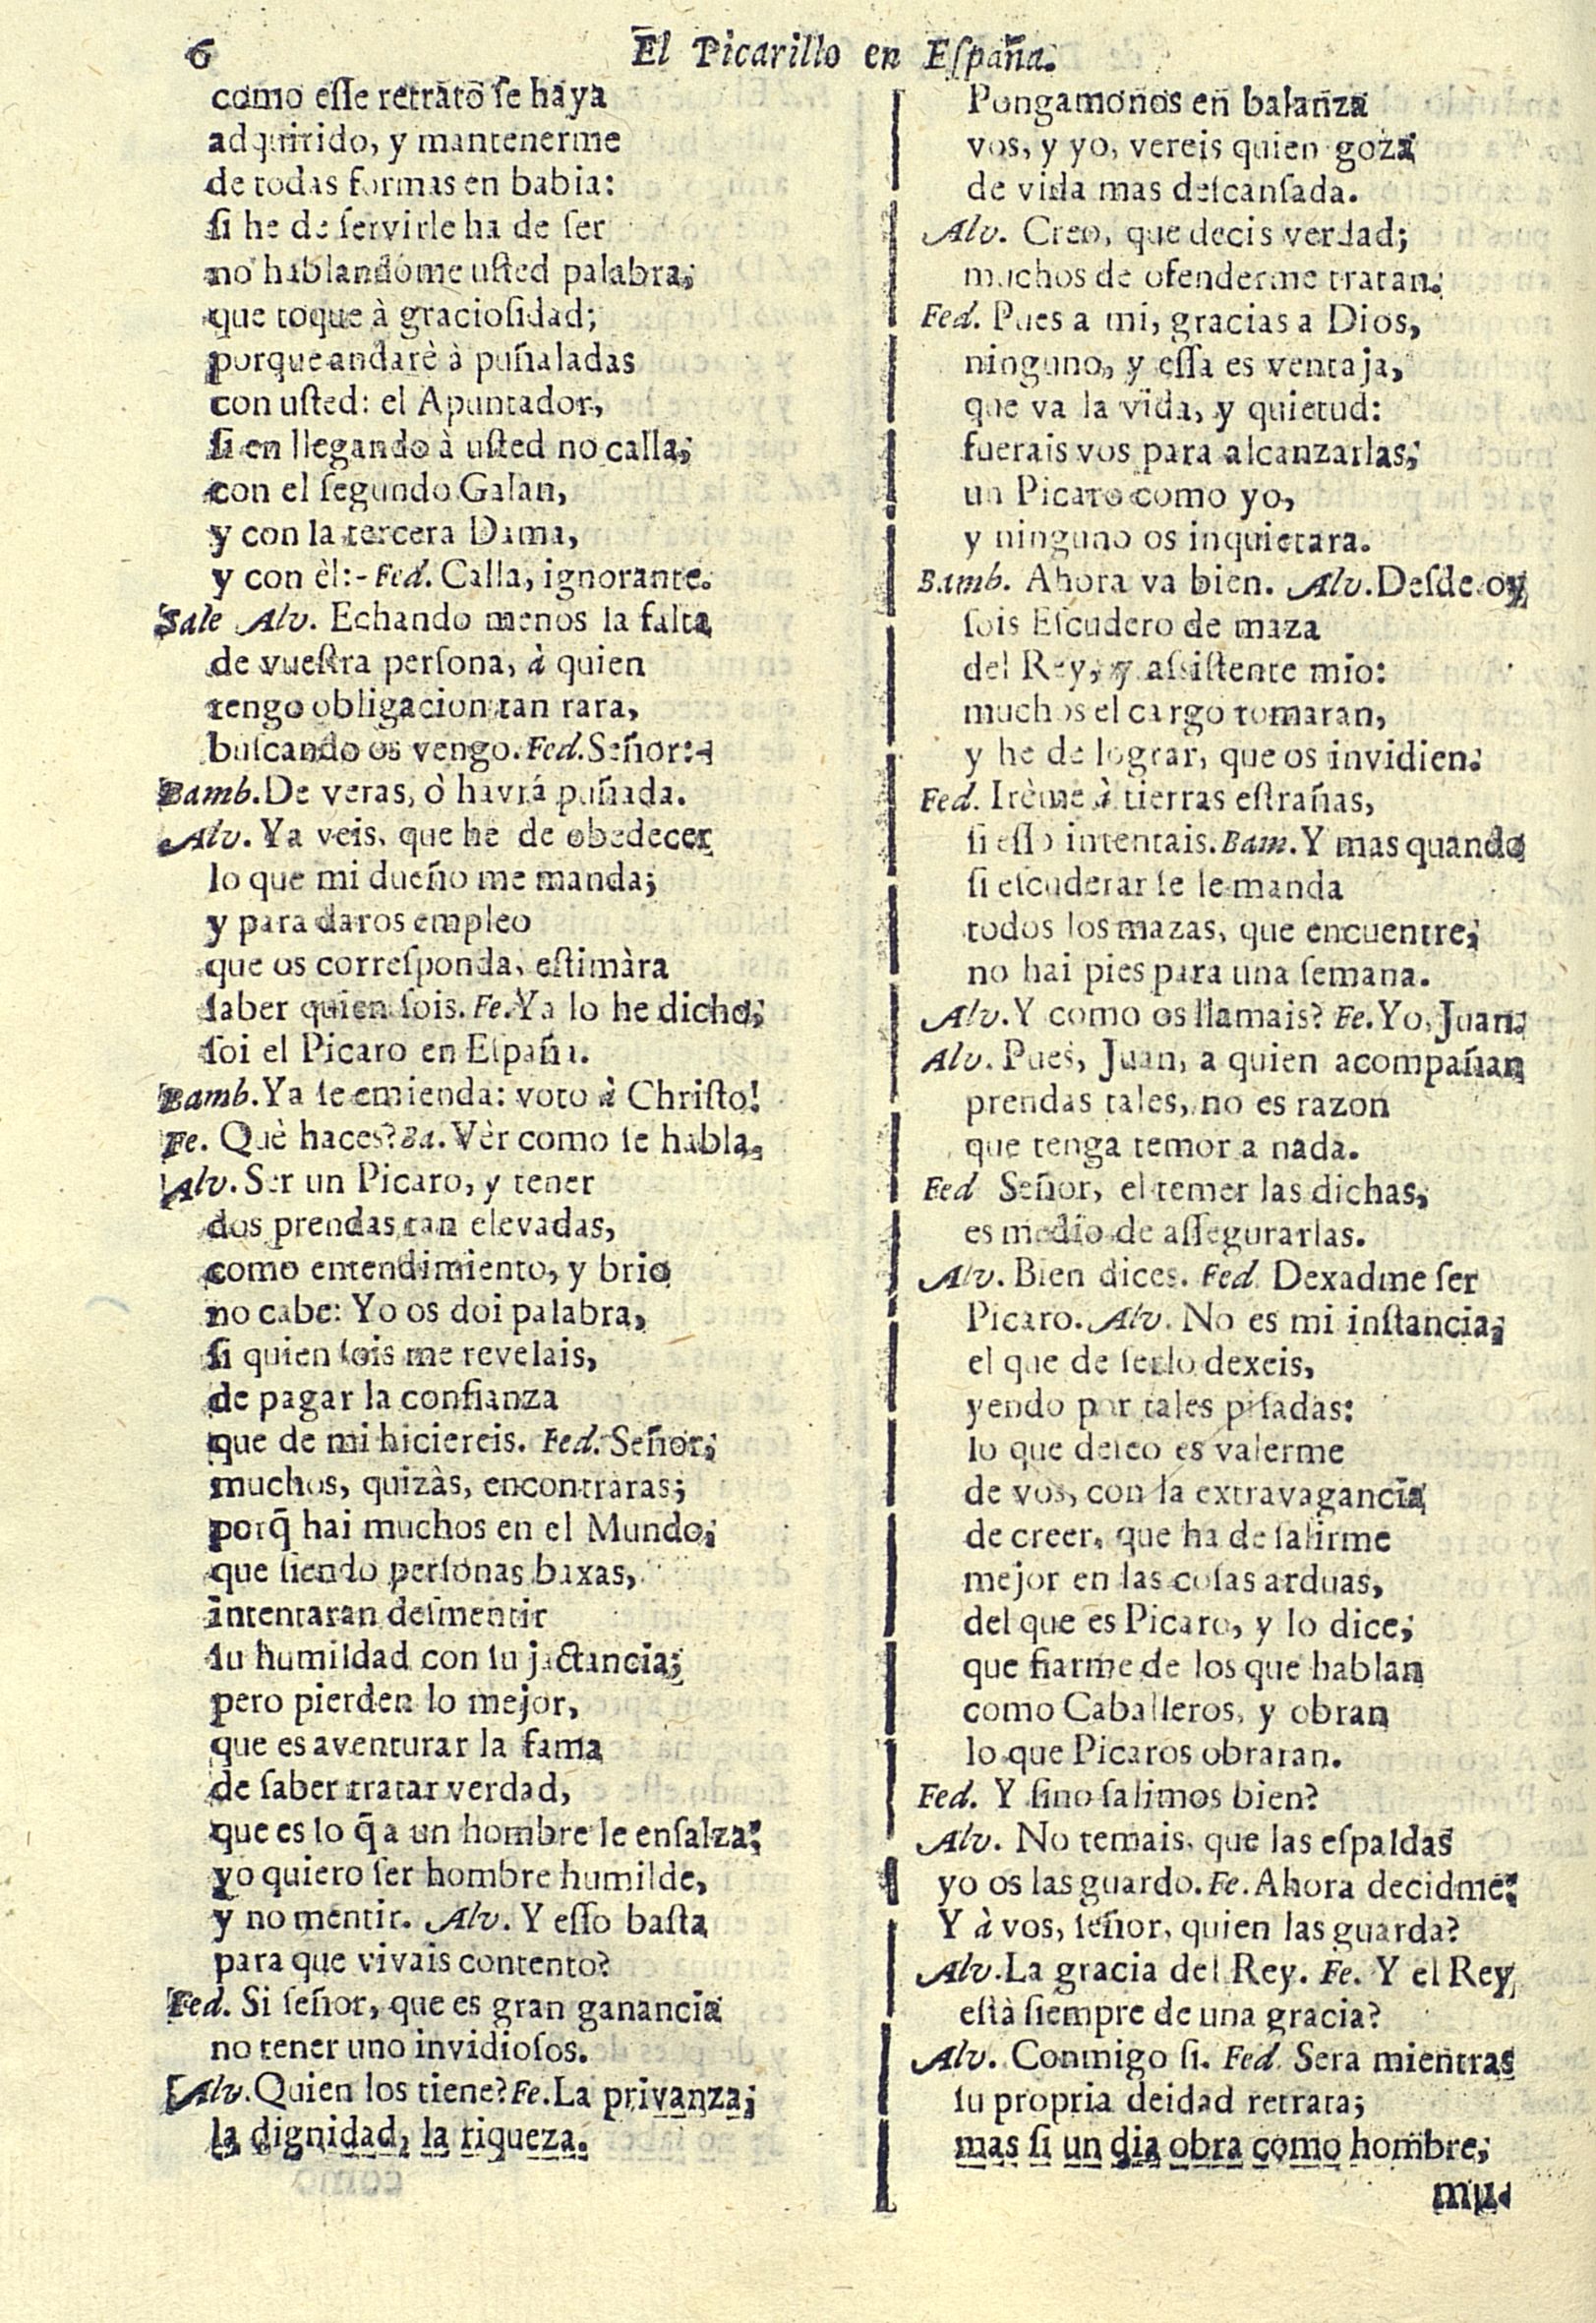 6
El Picarillo en Eſpaña.
como eſſe retrato ſe haya
adquirido, y mantenerme
de todas formas en babia:
ſi he de ſervirle ha de ſer
no hablandome uſted palabra,
que toque à gracioſidad;
porque andarè à puñaladas
con uſted: el Apuntador,
ſi en llegando à uſted no calla;
con el ſegundo Galan,
y con la tercera Dama,
y con èl:- Fed. Calla, ignorante.
Sale Alv. Echando menos la falta
de vueſtra perſona, à quien
tengo obligacion tan rara,
buſcando os vengo. Fed. Señor:-
Bamb. De veras, ò havrá puñada.
Alv. Ya veis, que he de obedecer
lo que mi dueño me manda;
y para daros empleo
que os correſponda, eſtimàra
ſaber quien ſois. Fe. Ya lo he dicho;
ſoi el Picaro en Eſpaña.
Bamb. Ya ſe emienda: voto à Chriſto!
Fe. Què haces? Ba. Vèr como ſe habla.
Alv. Ser un Picaro, y tener
dos prendas tan elevadas,
como entendimiento, y brio
no cabe: Yo os doi palabra,
ſi quien ſois me revelais,
de pagar la confianza
que de mi hiciereis. Fed. Señor,
muchos, quizàs, encontraras;
porq̃ hai muchos en el Mundo,
que ſiendo perſonas baxas,
intentaran deſmentir
ſu humildad con ſu jactancia;
pero pierden lo mejor,
que es aventurar la fama
de ſaber tratar verdad,
que es lo q̃ a un hombre le enſalza:
yo quiero ſer hombre humilde,
y no mentir. Alv. Y eſſo baſta
para que vivais contento?
Fed. Si ſeñor, que es gran ganancia
no tener uno invidioſos.
Alv. Quien los tiene? Fe. La privanza;
la dignidad, la riqueza.
Pongamonos en balanza
vos, y yo, vereis quien goza
de vida mas deſcanſada.
Alv. Creo, que decis verdad;
muchos de ofenderme tratan.
Fed. Pues a mi, gracias a Dios,
ninguno, y eſſa es ventaja,
que va la vida, y quietud:
fuerais vos para alcanzarlas,
un Picaro como yo,
y ninguno os inquietara.
Bamb. Ahora va bien. Alv. Deſde oy
ſois Eſcudero de maza
del Rey, y aſsiſtente mio:
muchos el cargo tomaran,
y he de lograr, que os invidien.
Fed. Irème à tierras eſtrañas,
ſi eſſo intentais. Bam. Y mas quando
ſi eſcuderar ſe le manda
todos los mazas, que encuentre,
no hai pies para una ſemana.
Alv. Y como os llamais? Fe. Yo, Juan.
Alv. Pues, Juan, a quien acompañan
prendas tales, no es razon
que tenga temor a nada.
Fed Señor, el temer las dichas,
es medio de aſſegurarlas.
Alv. Bien dices. Fed. Dexadme ſer
Picaro. Alv. No es mi inſtancia,
el que de ſerlo dexeis,
yendo por tales piſadas:
lo que deſeo es valerme
de vos, con la extravagancia
de creer, que ha de ſalirme
mejor en las coſas arduas,
del que es Picaro, y lo dice;
que fiarme de los que hablan
como Caballeros, y obran
lo que Picaros obraran.
Fed. Y ſino ſalimos bien?
Alv. No temais, que las eſpaldas
yo os las guardo. Fe. Ahora decidme:
Y à vos, ſeñor, quien las guarda?
Alv. La gracia del Rey. Fe. Y el Rey
eſtà ſiempre de una gracia?
Alv. Conmigo ſi. Fed. Sera mientras
ſu propria deidad retrata;
mas ſi un dia obra como hombre,
mu-